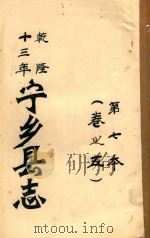 乾隆
十三年
宁乡县志
第七本
(卷之五)